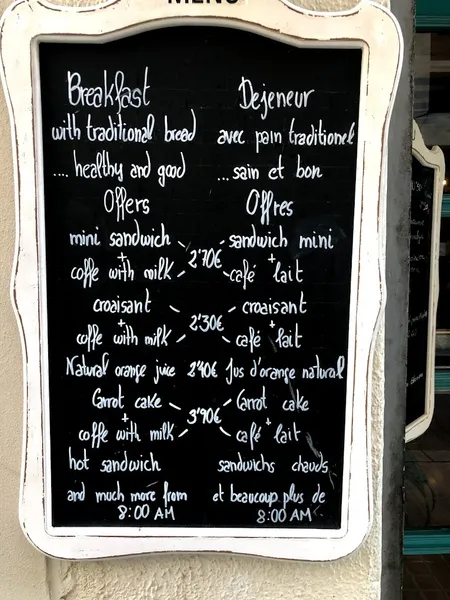 MENU
Breakfast Dejeuner
with traditional bread avec pain traditionel
.... healthy and good ... sain et bon
Offers Offres
mini sandwich sandwich mini
+ 2'70€ +
coffe with milk café lait
croaisant croaisant
+ 2'30€ +
coffe with milk café lait
Natural orange juice 2'40€ Jus d'orange natural
Carrot cake Carrot cake
+ 3'90€ +
coffe with milk café lait
hot sandwich sandwichs chauds
and much more from et beaucoup plus de
8:00 AM 8:00 AM